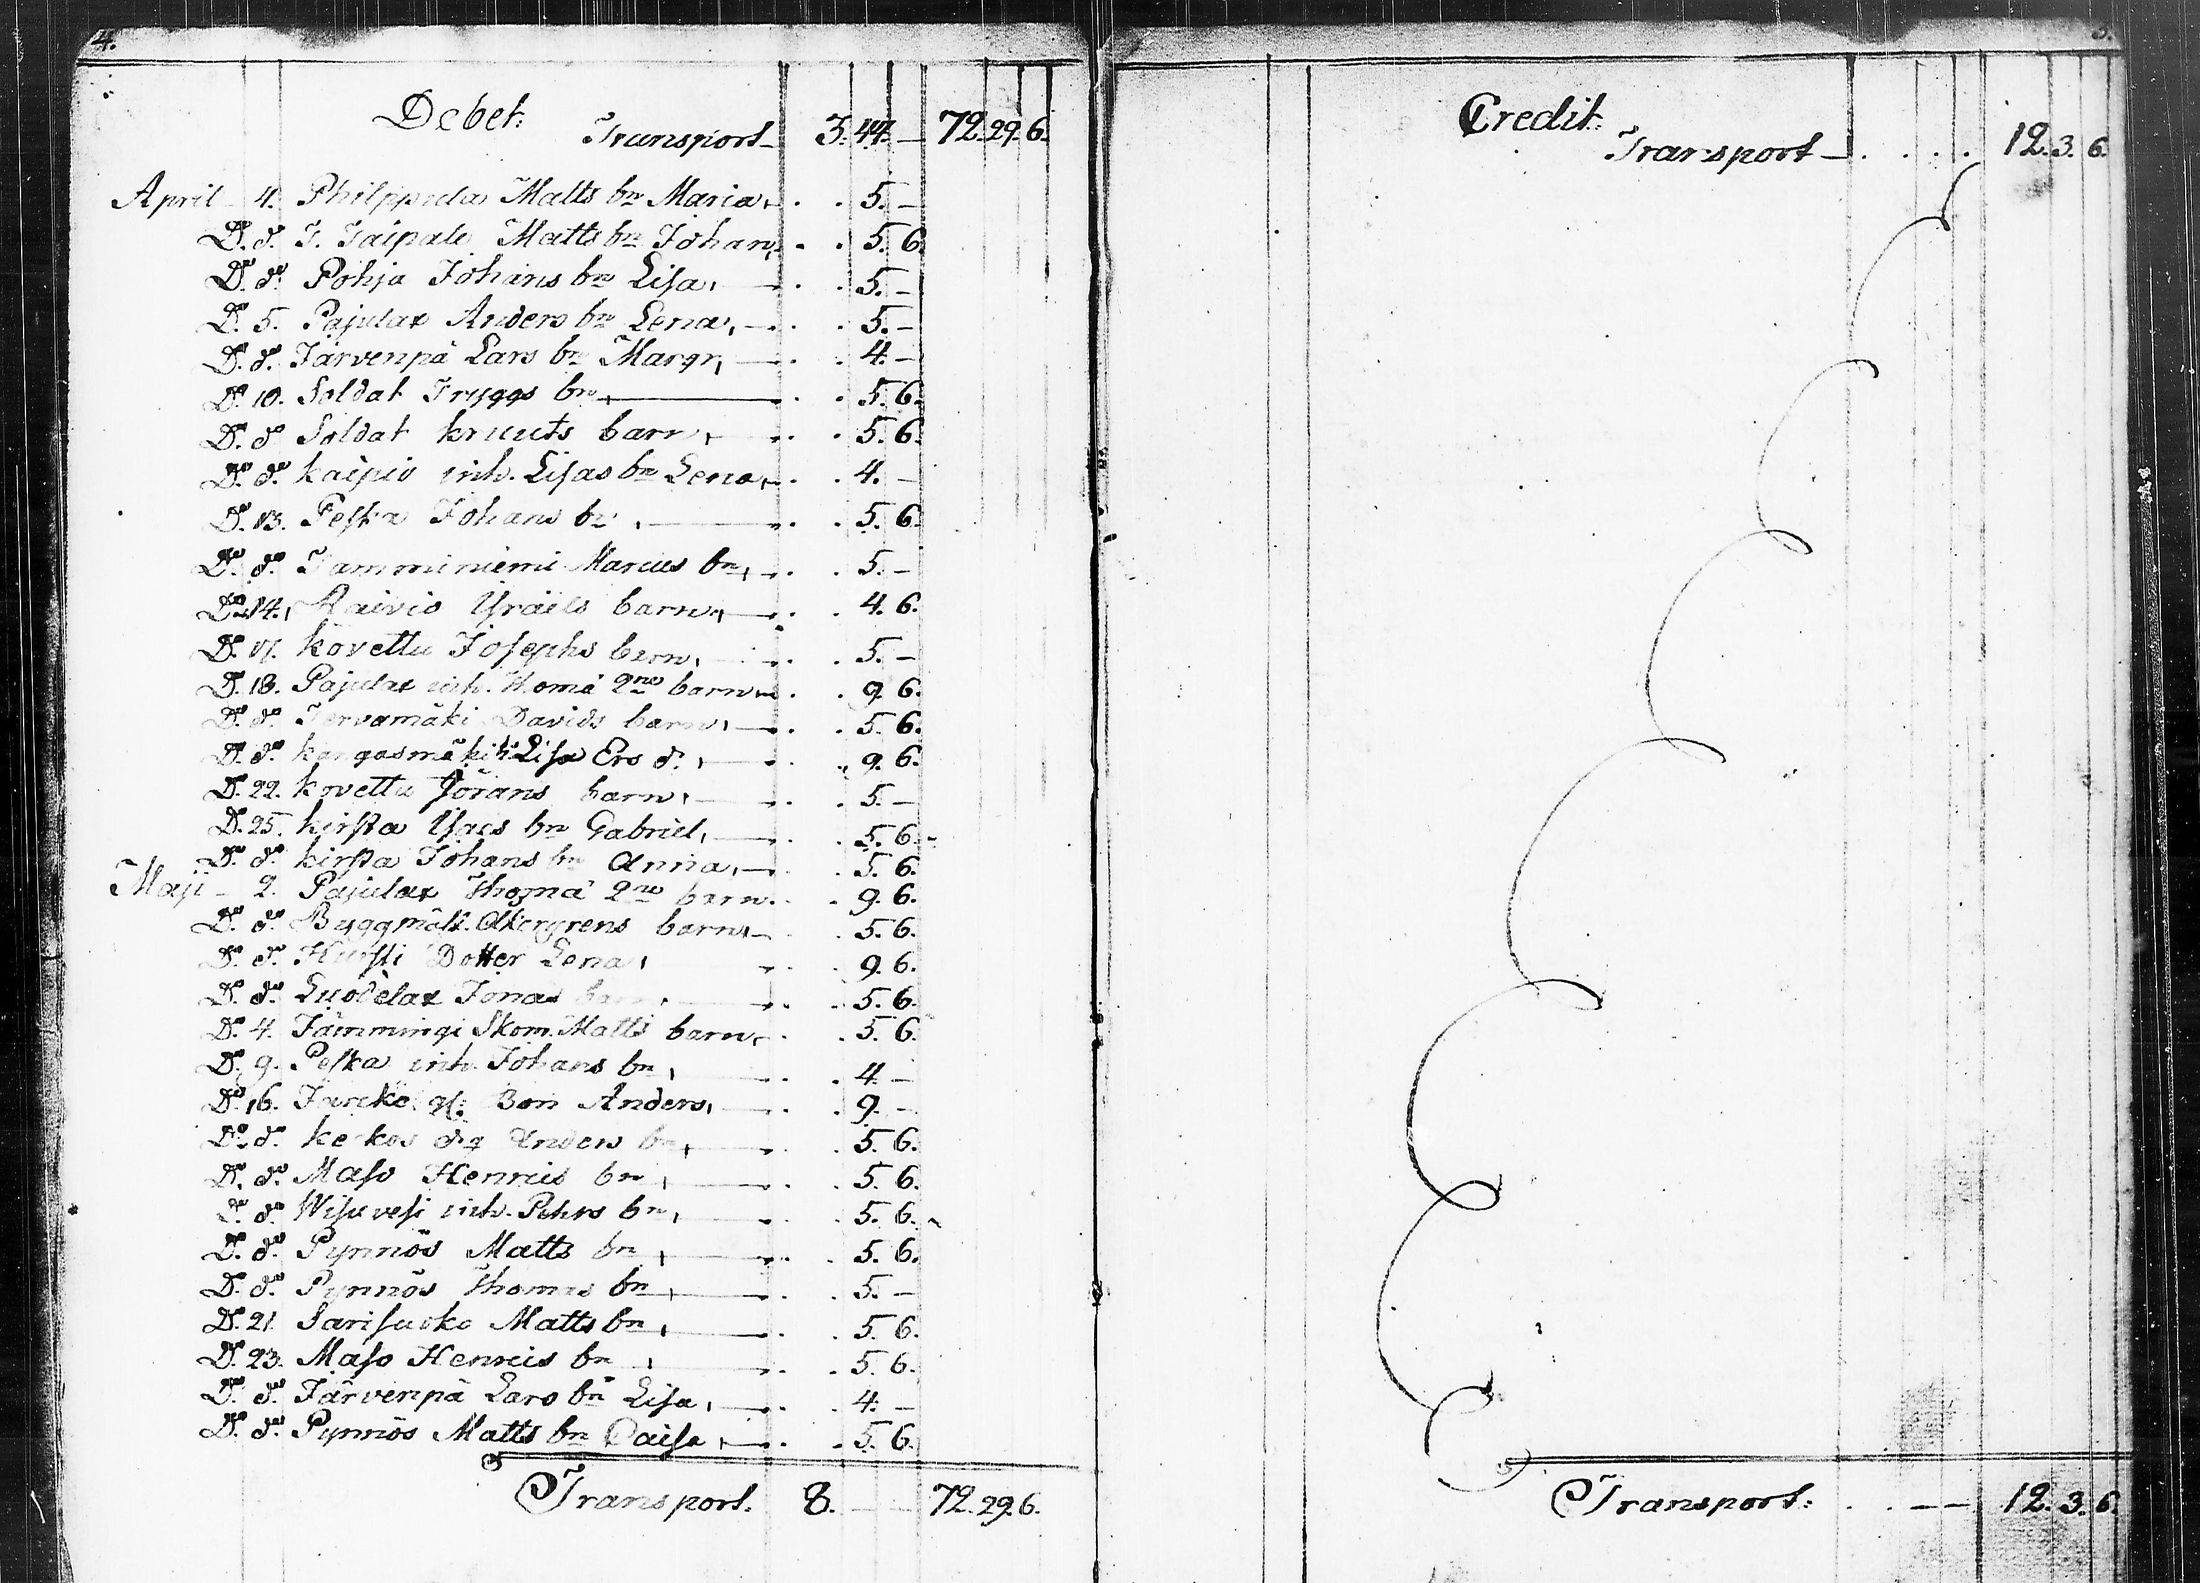 4.
Debet:
Transport 3. 44. — 72. 29. 6.
April 4. Philppula Matts bn Maria, 5. —
Do. do. I. Taipale Matts bn Johan, 5. 6.
Do. do. Pohja Johans bn Lisa, 5. —
Do. 5. Pajulax Anders bn Lena, 5. —
Do. do. Järvenpä Lars bn Margr, 4. —
Do. 10. Soldat Tryggs bn, 5. 6.
Do. do. Soldat kruuts barn, 5. 6.
Do. do. kaipio inh. Lisas bn Lena, 4. —
Do. 13. Peska Johans bn, 5. 6.
Do. do. Tamminiemi Marcus bn, 5. —
Do. 14. Raivio Israels barn, 4. 6.
Do. 17. kovettu Josephs barn, 5. —
Do. 18. Pajulax inh. Thomä 2ne barn 9. 6.
Do. do. Tervamäki Davids barn, 5. 6.
Do. do. kangasmäki Lisa Ers d., 9. 6.
Do. 22. kovettu Jörans barn, 5. —
Do. 25. kirsta Isacs bn Gabriel, 5. 6.
Do. do. kirsta Johans bn Anna, 5. 6.
Maji 2. Pajulax Thomä 2ne barn 9. 6.
Do. do. Byggmäst. Åkergrens barn, 5. 6.
Do. do. Kursti Dotter Lena, 9. 6.
Do. do. Luodelax Jonas barn, 5. 6.
Do. 4. Jämmingi Skom. Matts barn, 5. 6.
Do. 9. Peska inh. Johans bn, 4. —
Do. 16. Son Anders, 9. —
Do. do. Anders bn, 5. 6.
Do. do. Maso Henrics bn, 5. 6.
Do. do. Wisuvesi inh. Pehrs bn, 5. 6.
Do. do. Pynnös Matts bn, 5. 6.
Do. do. Pynnös Thomas bn, 5. —
Do. 21. Sarisuoko Matts bn, 5. 6.
Do. 23. Maso Henrics bn, 5. 6.
Do. do. Järvenpä Lars bn Lisa, 4. —
Do. do. Pynnös Matts bn Caisa, 5. 6.
Transport. 8. — — 72. 29. 6.
5.
Credit:
Transport — 12. 3. 6.
Transport: — — 12. 3. 6.